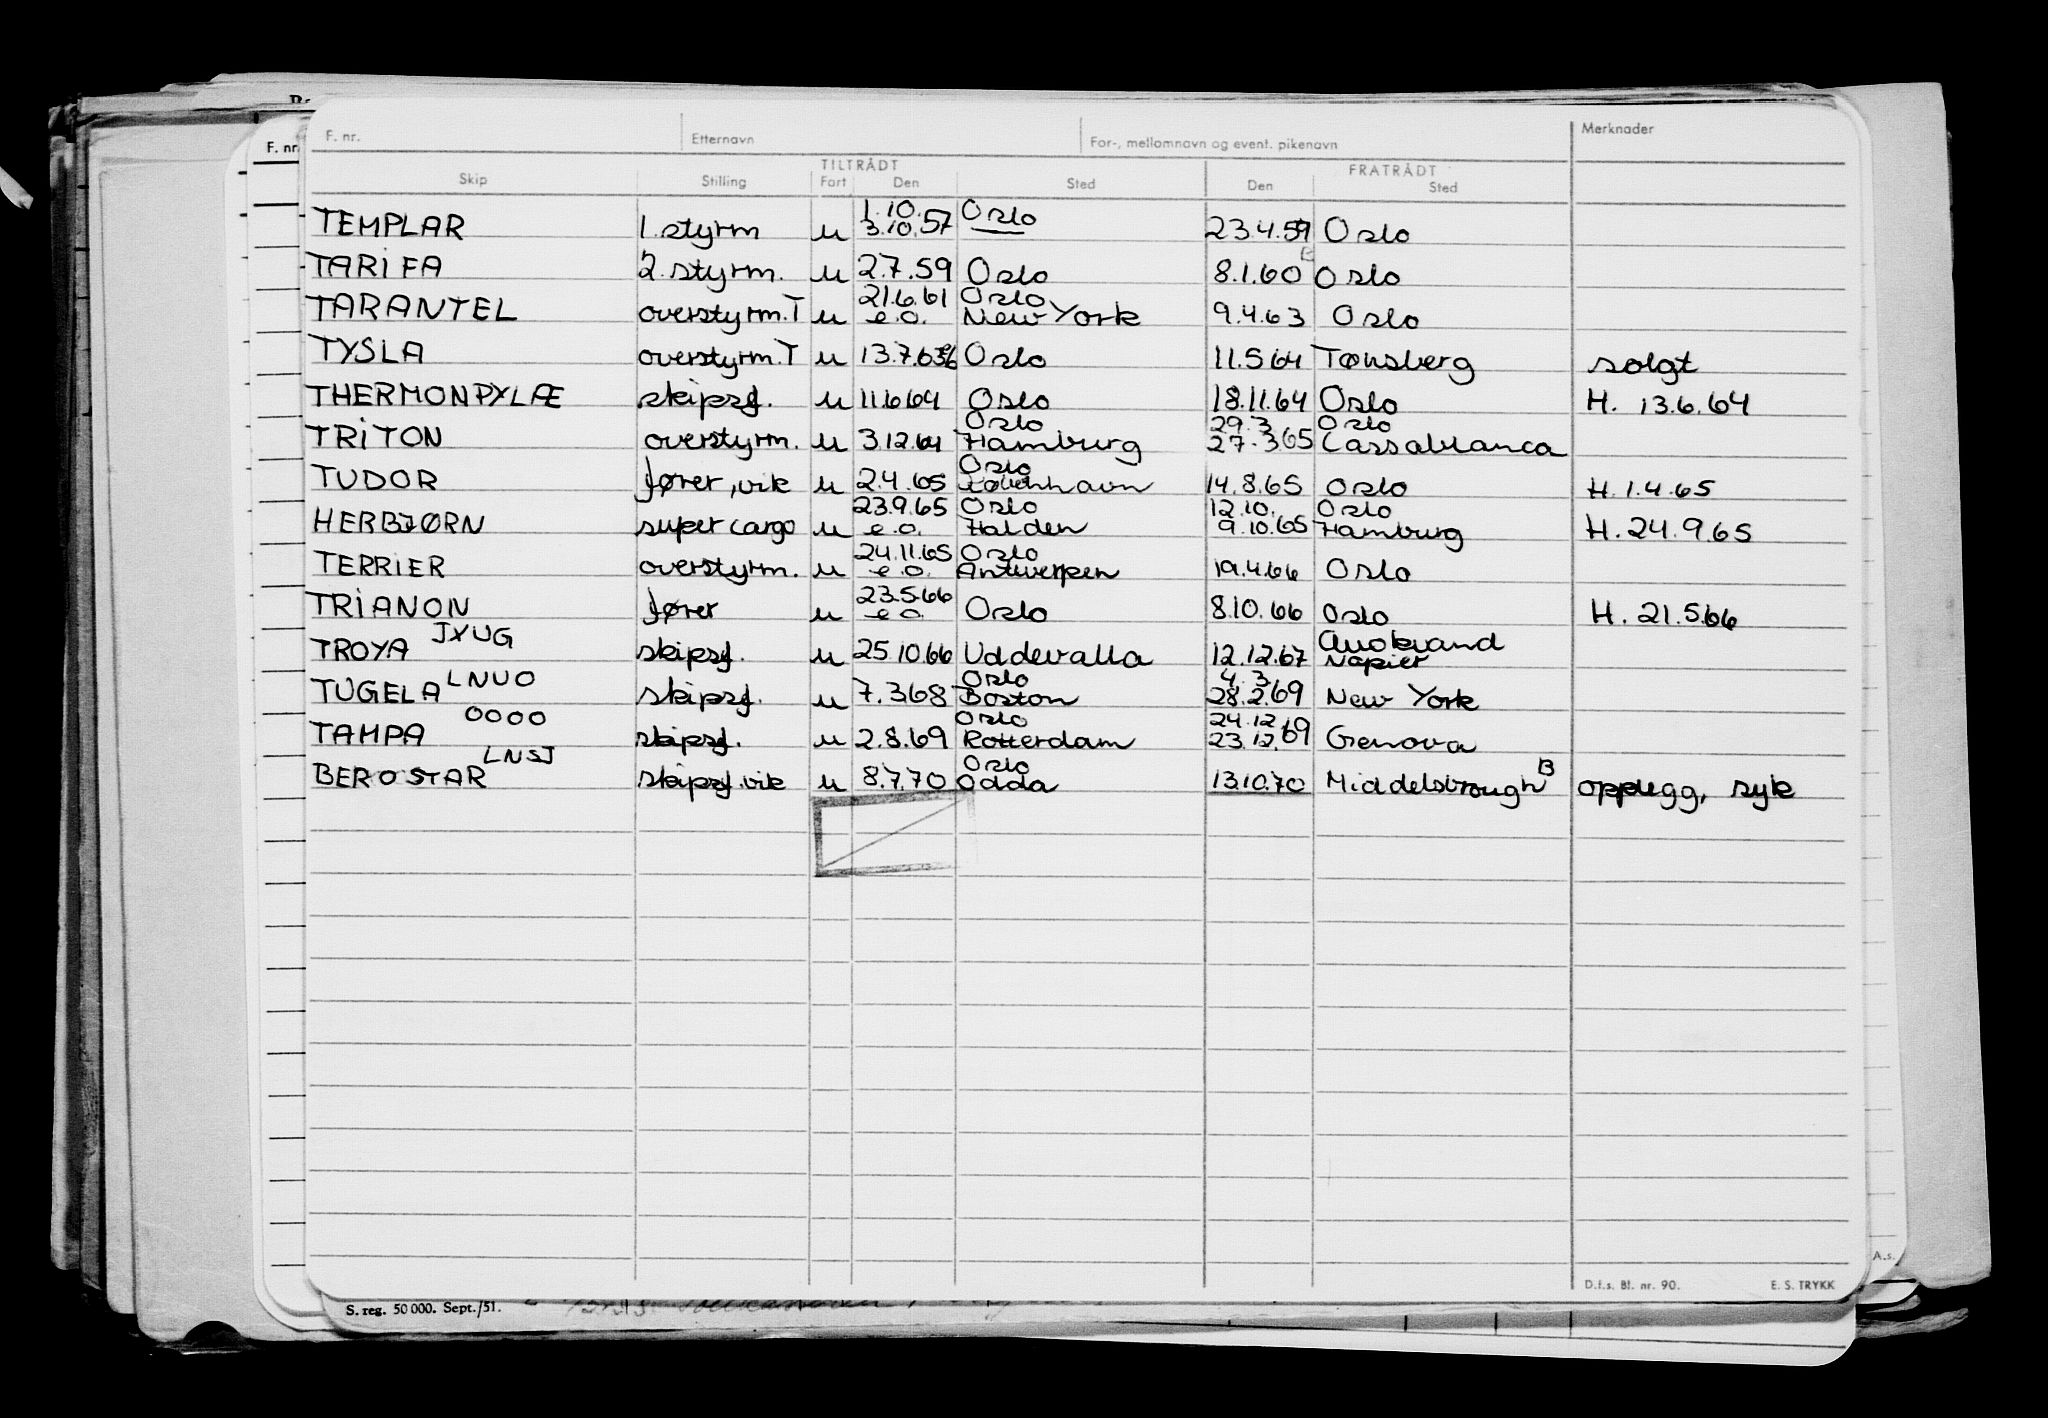 F. nr. Etternavn For-, mellomnavn og event. pikenavn Merknader
TILTRÅDT FRATRÅDT
Skip Stilling Fart Den Sted Den Sted
1.10. Oslo
TEMPLAR 1. styrm u 3.10.57 23.4.59 Oslo
TARIFA 2. styrm. u 2.7.59 Oslo 8.1.60 Oslo
21.6.61 Oslo
TARANTEL overstyrm. T u e.o. New York 9.4.63 Oslo
TYSLA overstyrm. T u 13.7.63 Oslo 11.5 64 Tønsberg solgt
THERMONPYLÆ skipsf. u 11.6 64 Oslo 18.11.64 Oslo H. 13.6.64
Oslo 29.3 Oslo
TRITON overstyrm. u 3.12.64 Hamburg 27.3.65 Cassablanca
Oslo
TUDOR fører, vik u 2.4.65 København 14.8.65 Oslo H.1.4.65
23.9.65 Oslo 12.10. Oslo
HERBJØRN super cargo u e.o. Halden 9.10.65 Hamburg H.24.9.65
24.11.65 Oslo
TERRIER overstyrm. u e.o. Antwerpen 19.4.66 Oslo
23.5.66
TRIANON fører u e.o. Oslo 8.10.66 Oslo H. 21.5.66
JXUG
TROYA skipsf. u 25.10.66 Uddevalla 12.12.67 Napier
LNUO Oslo 4.3.
TUGELA skipsf. u 7.3.68 Boston 28.2.69 New York
OOOO Oslo 24.12
TAMPA skipsf. u 2.8.69 Rotterdam 23.12.69 Genova
LNSJ Oslo B
BEROSTAR skipsf. vik u 8.7.70 Odda 13.10.70 Middelsbrough opplegg, syk
D.f.s. Bl. nr. 90. E. S. TRYKK
S. reg. 50 000. Sept./51.
F. nr.
A.s.